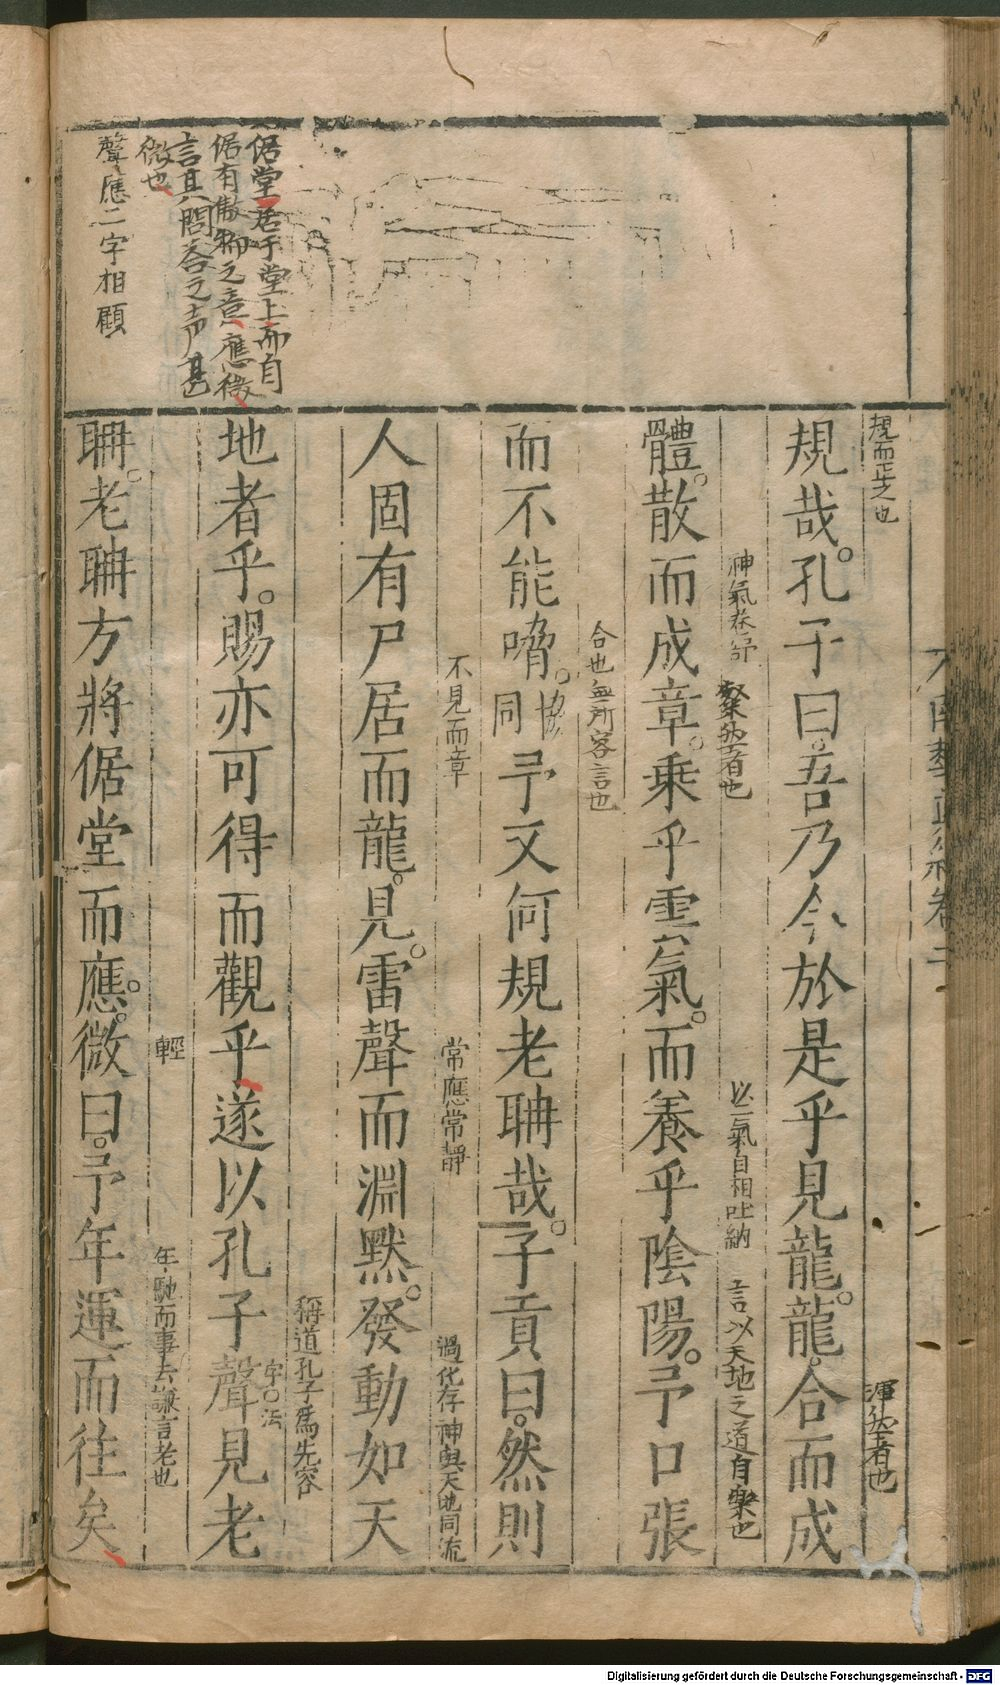 倨堂居于堂上而自
倨有傲物之意應微
言其問荅之声甚
微也
聲應二字相顧
規而正之也
渾然者也
規哉。孔子曰。吾乃今於是乎見龍。龍。合而成
神氣卷舒
粲然者也
以二氣自相吐納
言以天地之道自樂也
體。散而成章。乘乎雲氣。而養乎陰陽。予口張
合也無所容言也
而不能嗋。同協予又何規老聃哉。子貢曰。然則
不見而章
常應常靜
過化存神與天地同流
人固有尸居而龍。見。雷聲而淵默。發動如天
稱道孔子爲先容
地者乎。賜亦可得而觀乎遂以孔子聲字法見老
輕
年馳而事去謙言老也
聃。老聃方將倨堂而應。微曰。予年運而往矣
Digitalisierung gefördert durch die Deutsche Forschungsgemeinschaft - DFG